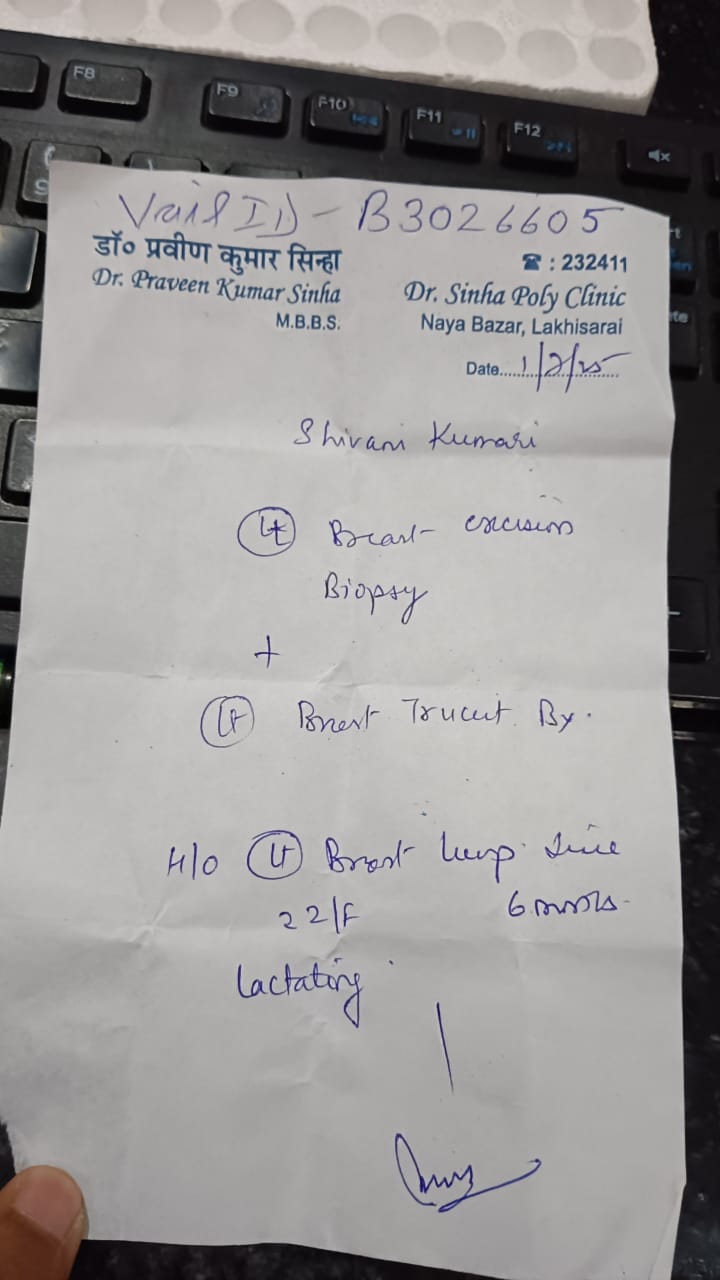 Vail ID - B3026605
डॉ० प्रवीण कुमार सिन्हा
Dr. Praveen Kumar Sinha
M.B.B.S.
☎ : 232411
Dr. Sinha Poly Clinic
Naya Bazar, Lakhisarai
Date.....1/2/25
Shivani Kumari
Lt Breast excision
Biopsy
+
Lt Breast Trucut By.
H/O Lt Breast lump since
22/F 6 months
Lactating
F8
F9
F10
F11
F12